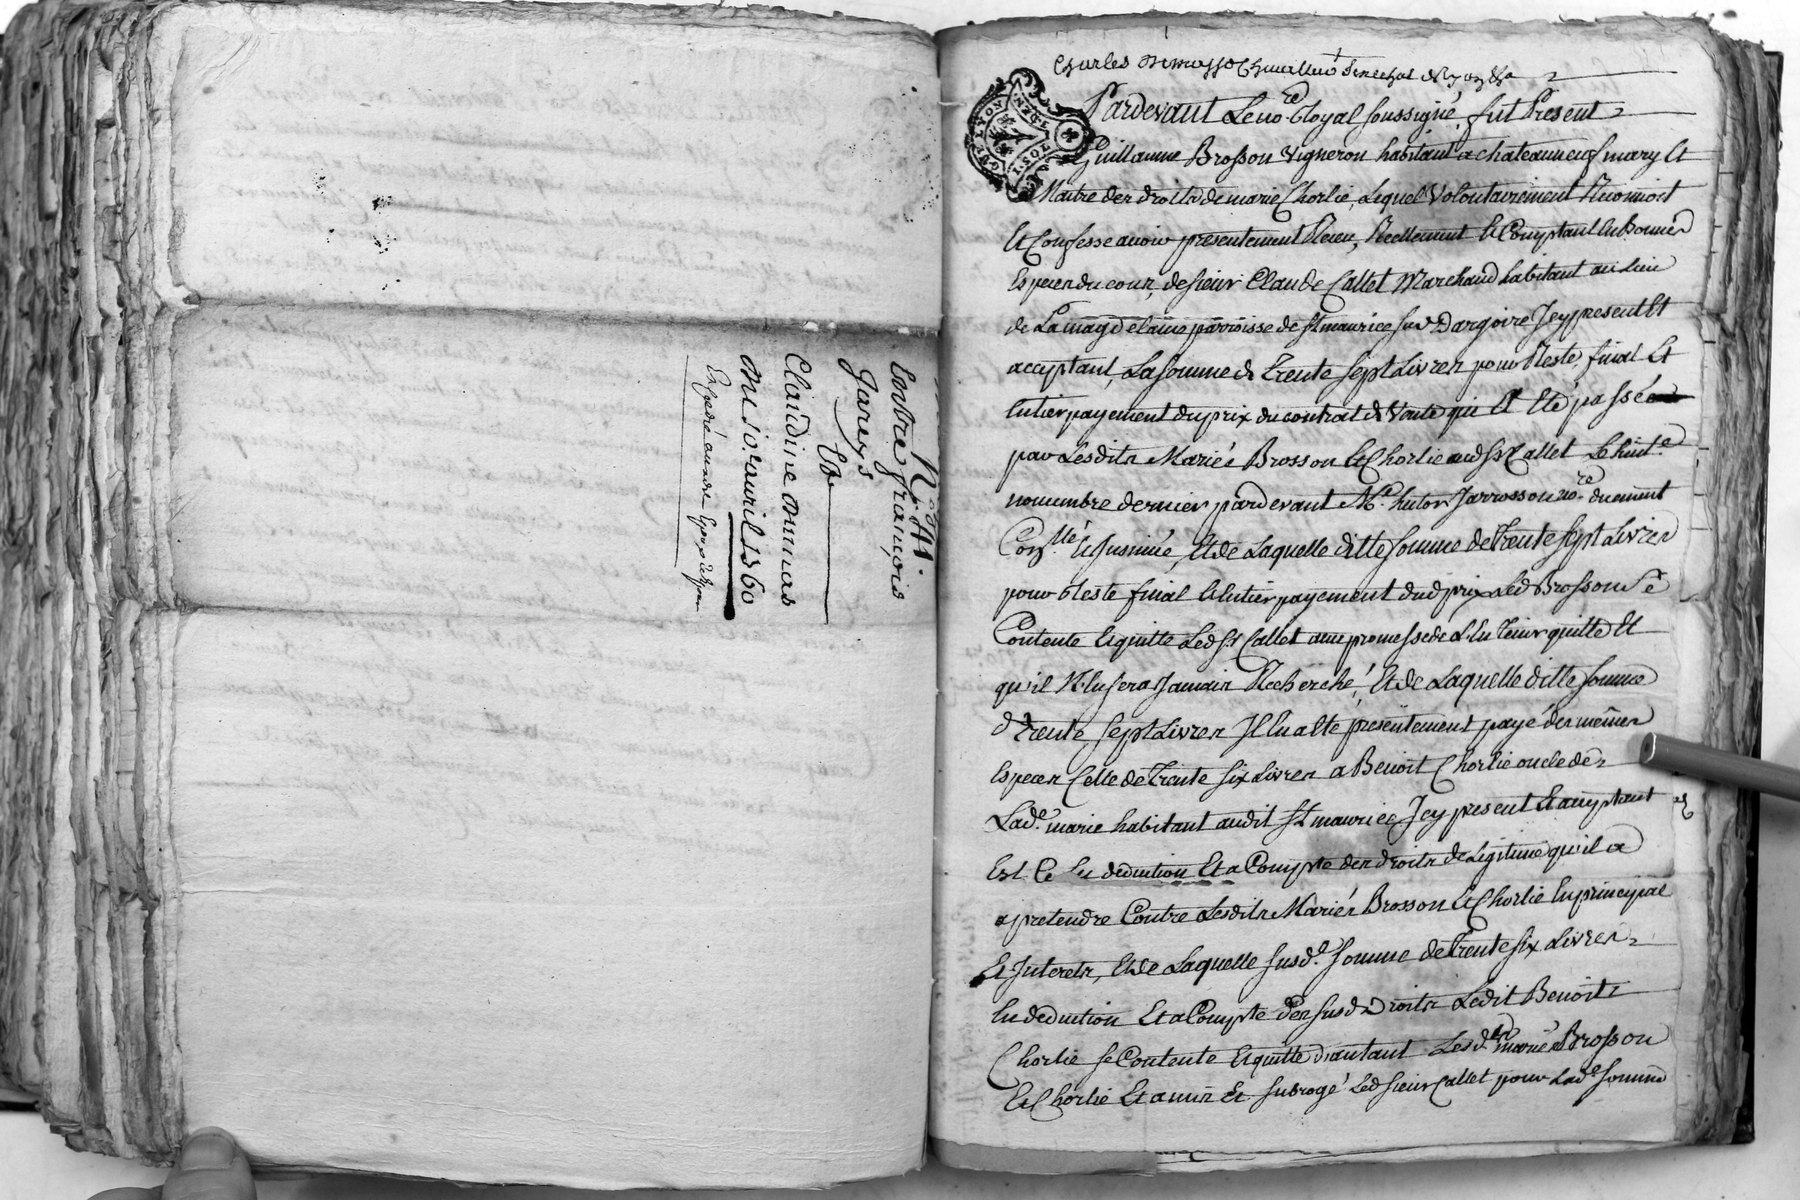 N.e 341.
Entre françois
Jareys
Et
Claudine Dumas
Du 10.e avril 1760
Expedié
charles
GNE LYON
Pardevant Le no.re Royal soussigné, fut Present
Guillaume Brosson vigneron habitant a chateauneuf mary Et
Maitre des droits de marie Chorlie, Lequel volontairement Reconnoit
Et Confesse avoir presentement Receu, Reellement Et Comptant En Bonnes
Especes du cour, de sieur Claude Callet Marchand habitant au Lieu
de Lamagdelaine parroisse de St maurice sur Dargoire Icy present Et
acceptant, La somme de Trente sept Livres pour Reste, final Et
Entier payement du prix du contrat de vente qui a Eté passé
par Lesdits Mariés Brosson Et Chorlie aud Sr Callet Le huit.e
novembre dernier pardevant M.e Jarrosson no.re duement
Con.llé Et Insinué, Et de Laquelle ditte somme de Trente sept Livres
pour Reste final Et Entier payement dud prix Led Brosson se
Contente Et quitte Led Sr Callet avec promesse de L'En Tenir quitte Et
qu'il N'En sera Jamais Recherché, Et de Laquelle ditte somme
de Trente sept Livres Il En a Eté presentement payé des mêmes
Especes Celle de Trente six Livres a Benoit Chorlie oncle de
Lad.e marie habitant audit St maurice Icy present Et acceptant
Est Ce En deduction Et a Compte des droits de Légitime qu'il a
a pretendre Contre Lesdits Mariés Brosson Et Chorlie En principal
Et Interets, Et de Laquelle susd.e somme de Trente six Livres
En deduction Et a Compte des susd Droits Ledit Benoit
Chorlie se Contente Et quitte d'autant Lesd.s mariés Brosson
Et Chorlie Et a mis Et subrogé Led sieur Callet pour Lad.e somme